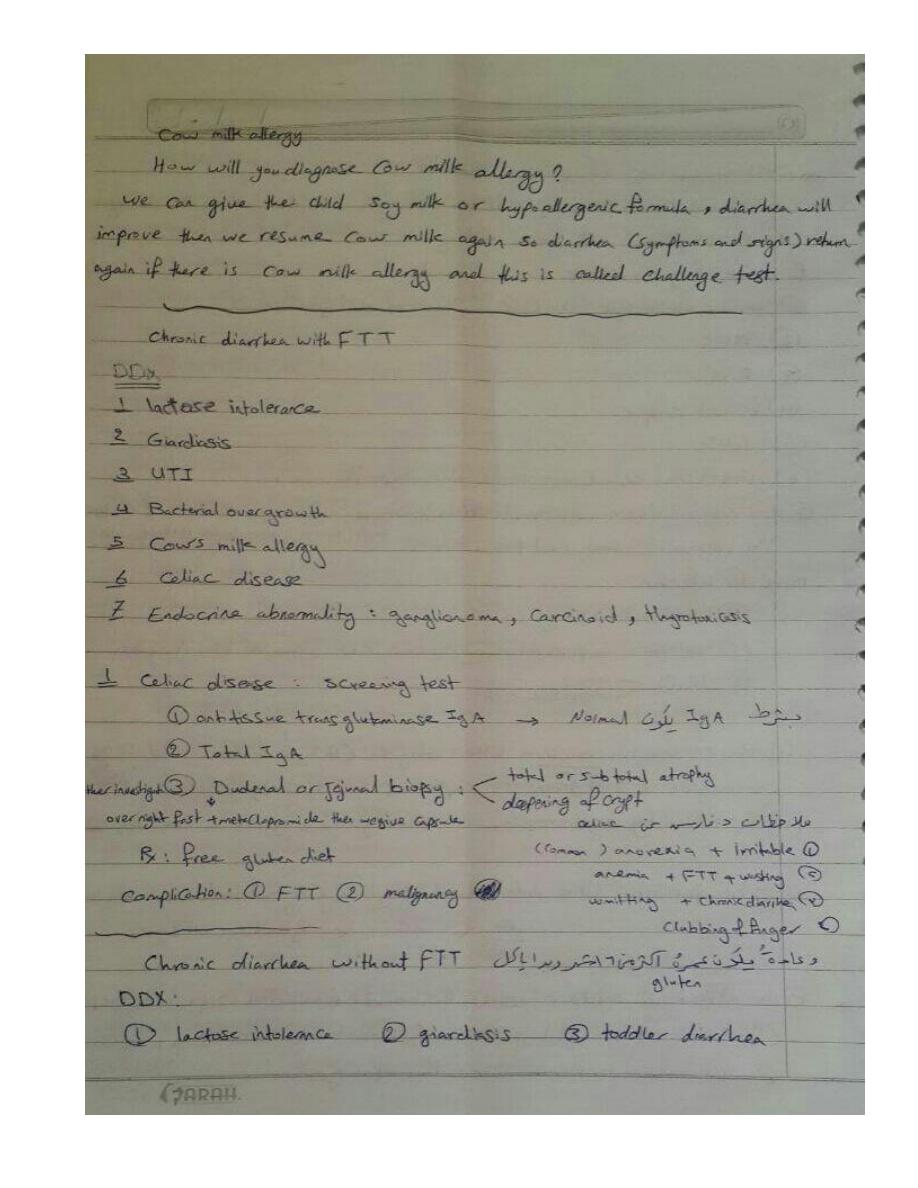 Cow milk allergy
How will you diagnose Cow milk allergy?
we can give the child soy milk or hypoallergenic formula, diarrhea will
improve then we resume cow milk again so diarrhea (symptoms and signs) return
again if there is cow milk allergy and this is called challenge test.
Chronic diarrhea with FTT
DDx
1 lactose intolerance
2 Giardiasis
3 UTI
4 Bacterial overgrowth
5 Cow's milk allergy
6 Celiac disease
7 Endocrine abnormality : ganglionoma, Carcinoid, thyrotoxicosis
1 Celiac disease : screening test
① anti tissue transglutaminase IgA → Normal يكون IgA بشرط
② Total IgA
③ Dudenal or Jejunal biopsy : total or subtotal atrophy
deepening of crypt
over night fast + metaclopromide then we give capsule
ملاحظات د فارس عن celiac
Rx : free gluten diet
(common) anorexia + irritable ①
Complication: ① FTT ② malignancy
anemia + FTT + wasting ②
vomitting + chronic diarrhea ③
Clubbing of finger ④
Chronic diarrhea without FTT
وعادة يكون عمره أكثر من ٦ اشهر وبدا ياكل
gluten
DDX:
① lactose intolerance ② giardiasis ③ toddler diarrhea
SARAH.